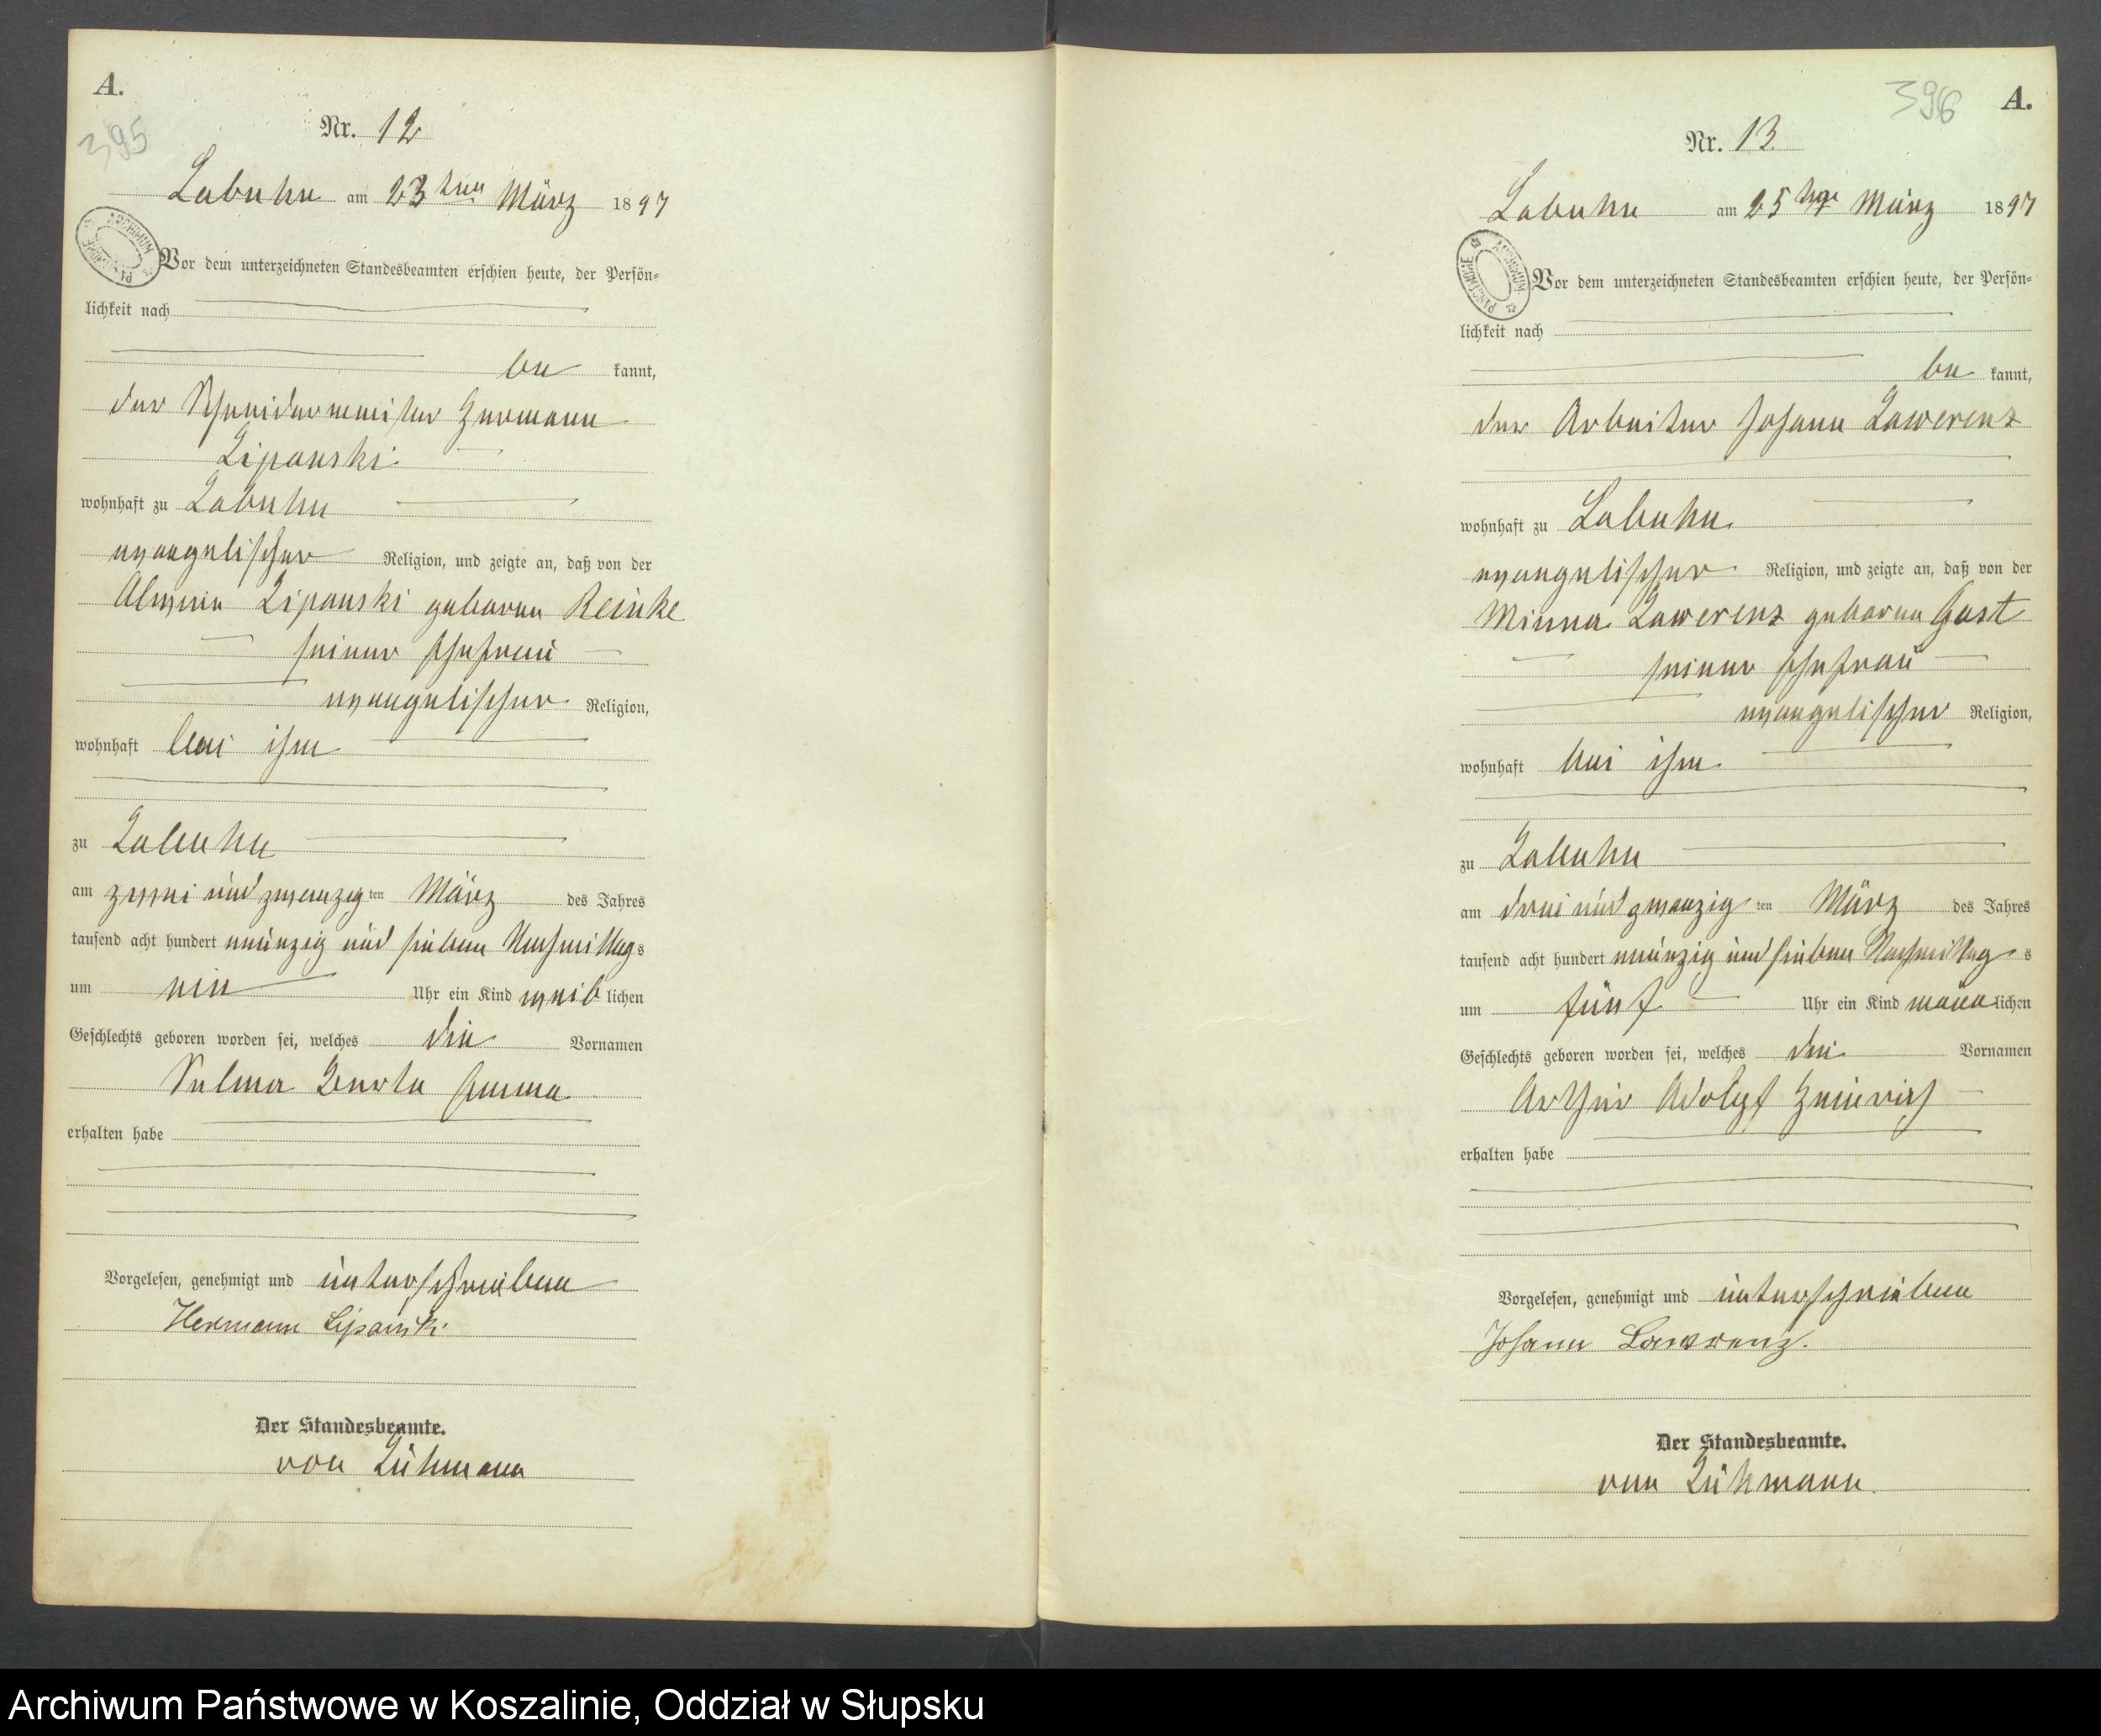 A.
395
Nr. 12
Labuhn am 23ten März 1897
Vor dem unterzeichneten Standesbeamten erschien heute, der Persön-
lichkeit nach
be kannt,
der Schneidermeister Hermann
Lipanski
wohnhaft zu Labuhn
evangelischer Religion, und zeigte an, daß von der
Lipanski geborene Reinke
seiner Ehefrau
evangelischer Religion,
wohnhaft bei ihm
zu Labuhn
am zwei und zwanzig ten März des Jahres
tausend acht hundert neunzig und sieben Nachmittags
um ein Uhr ein Kind weib lichen
Geschlechts geboren worden sei, welches die Vornamen
Selma Berta Emma
erhalten habe
Vorgelesen, genehmigt und unterschrieben
Hermann Lipanski
Der Standesbeamte.
von Lühmann
396 A.
Nr. 13
Labuhn am 25ten März 1897
Vor dem unterzeichneten Standesbeamten erschien heute, der Persön-
lichkeit nach
be kannt,
der Arbeiter Johann Lawerenz
wohnhaft zu Labuhn
evangelischer Religion, und zeigte an, daß von der
Minna Lawerenz geborene Gast
seiner Ehefrau
evangelischer Religion,
wohnhaft bei ihm
zu Labuhn
am drei und zwanzig ten März des Jahres
tausend acht hundert neunzig und sieben Nachmittag s
um fünf Uhr ein Kind männlichen
Geschlechts geboren worden sei, welches die Vornamen
Arthur Adolf Heinrich
erhalten habe
Vorgelesen, genehmigt und unterschrieben
Johann Lawrenz.
Der Standesbeamte.
von Lühmann.
Archiwum Państwowe w Koszalinie, Oddział w Słupsku